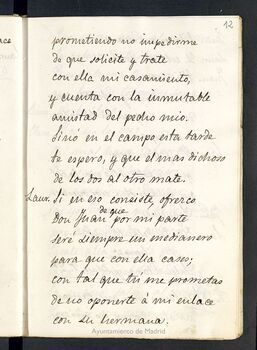 12
prometiendo no impedirme
de que solicite y trate
con ella mi casamiento,
y cuenta con la inmutable
amistad del pecho mio.
Sinó en el campo esta tarde
te espero, y que el mas dichoso
de los dos al otro mate.
Laur. Si en eso consiste, ofrezco
de que
Don Juan por mi parte
seré siempre un medianero
para que con ella case;
con tal que tú me prometas
de no oponerte á mi enlace
con su hermana.
Ayuntamiento de Madrid